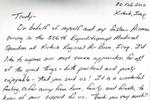 20 Feb 2010
Kirkuk, Iraq
Trudy-
On behalf of myself and my fellow Airmen
serving in the 506th Expeditionary Medical
Squadron at Kirkuk Regional Air Base, Iraq, I'd
like to express our most sincere appreciation for all
of the great things - both practical and purely
enjoyable - that you sent us! It is a wonderful
feeling, so far away from home, family, and friends, to
know of your support for us. Thank you very much!